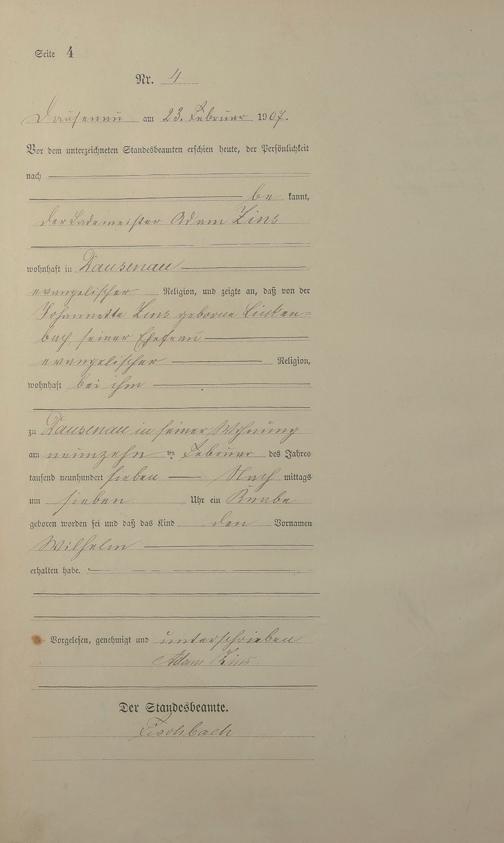 Seite 4
Nr. 4
Dausenau am 23. Februar 1907.
Vor dem unterzeichneten Standesbeamten erschien heute, der Persönlichkeit
nach
be kannt,
der Lademeister Adam Zins
wohnhaft in Dausenau
evangelischer Religion, und zeigte an, daß von der
Johannette Zins geborene Linken-
bach seiner Ehefrau
evangelischer Religion,
wohnhaft bei ihm
zu Dausenau in seiner Wohnung
am neunzehn ten Februar des Jahres
tausend neunhundert sieben Nach mittags
um sieben Uhr ein Knabe
geboren worden sei und daß das Kind den Vornamen
Wilhelm
erhalten habe.
Vorgelesen, genehmigt und unterschrieben
Adam Zins
Der Standesbeamte.
Fischbach